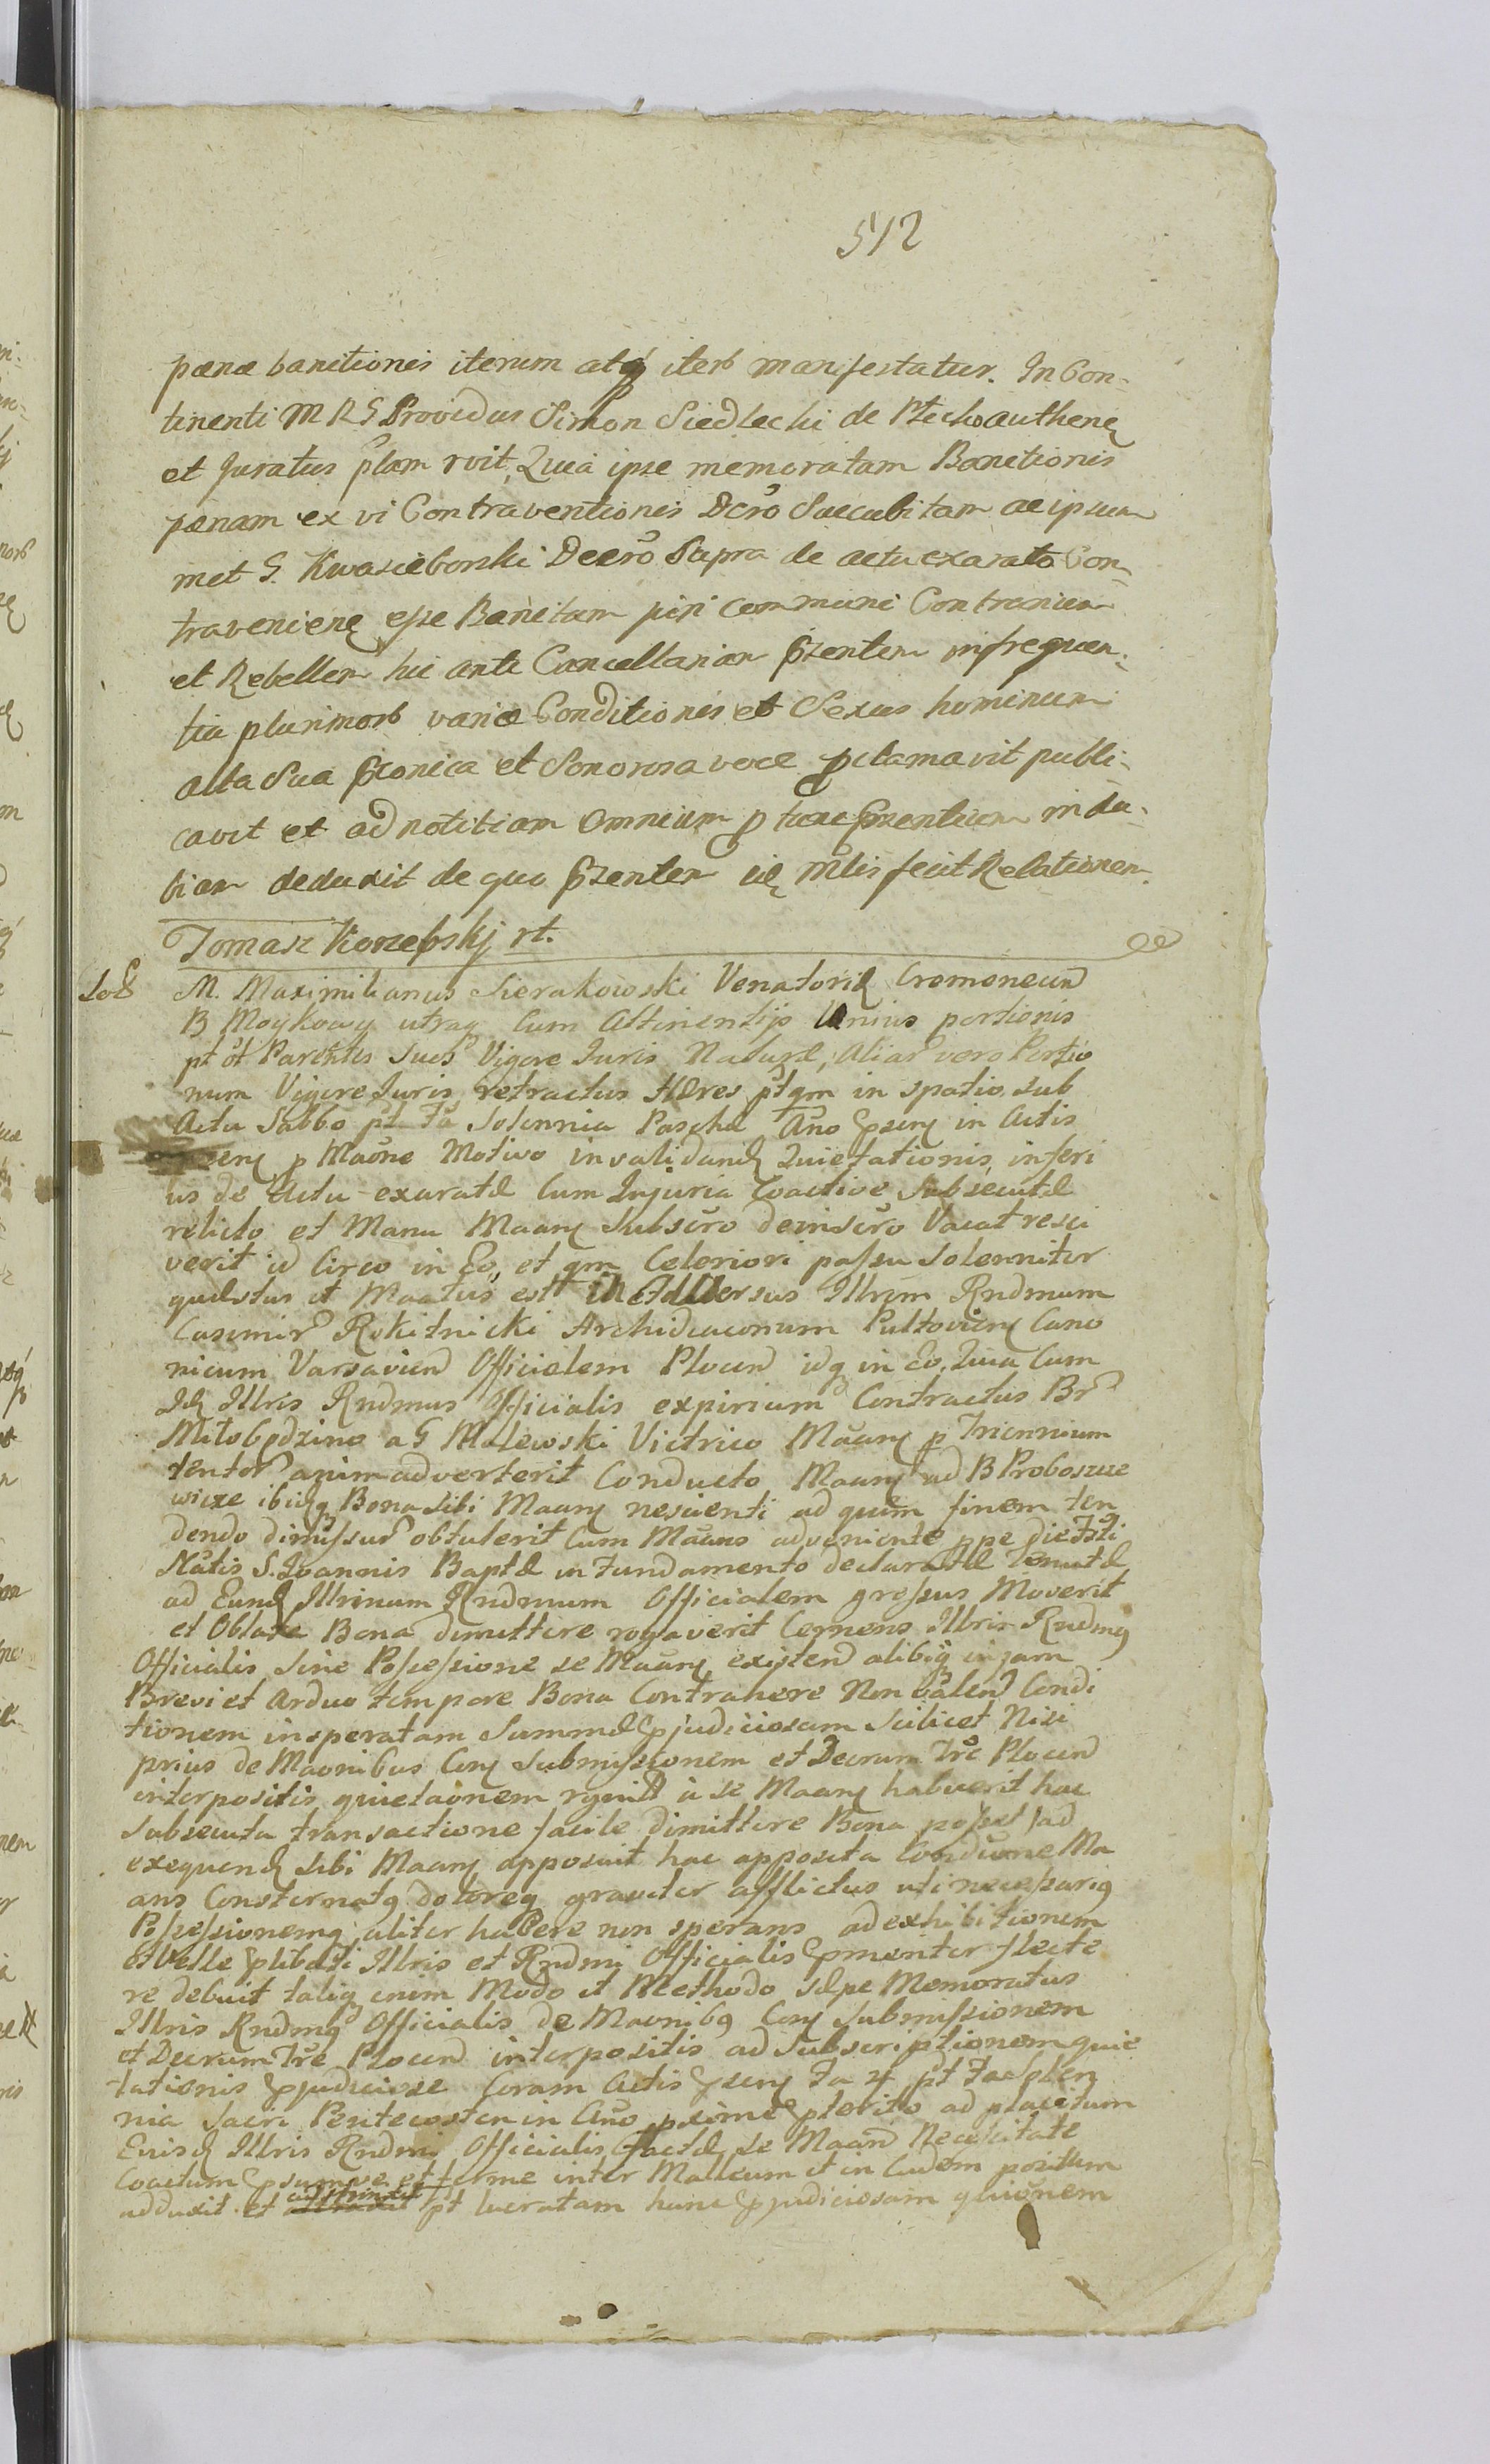 512
pænæ banitionis iterum atq iterb manifestatur. In Con-
tinenti M R G Providus Simon Siedlecki de authenq
et Juratus plam rvit, Quia ipse memoratam Banitionis
pænam ex vi Contraventionis Dcro Succubitam ac ipsum
met G. Kwasieborski Decro Supra de actu exarato Con-
travenienq esse Banitum juri communi Contrarium
et Rebellem hic ante Cancellariam pzentem in frequen-
tia plurimorb variæ Conditionis et Sexus hominum
alta Sua pconica et Sonorosa voce pclamavit publi-
cavit et ad notitiam omnium p tunc pzentium indu-
biam deduxit de quo pzentem ilq mlis fecit Relationem.
Tomasz Korzebskj rt.
M. Maximilianus Sierakowski Venatorid Cremonecun
B Moykowy utraq Cum Attinentijs Unius portionis
pt ot Parentis Sui Vigore Juris Naturæ, Aliar vero Portio
num Vigore Juris retractus Hæres ptqm in spatio sub
Actu Sabbo pt Fa Solennia Paschæ Ano pzenq in Actis
pzenq p Maone Motivo invalidandq Quietationis, inferi
us de Actu exaratæ Cum Injuria Coactive Subsecutæ
relicto et Manu Maanq Subscro deinscro Vacat resci
verit id Circo in Eo, et qm Celeriori passu Solenniter
quæstus et Maatus est in Adversus Illrem Rndmum
Casimir Rokitnicki Archidiaconum Pultovienq Cano
nicum Varsavien Officialem Plocen idq in Eo, Quia Cum
Idq Illris Rndmus Officialis expirium Contractus Br
Miłobędzino a G Malewski Victrico Maanq p Triennium
tentor animadverterit Conducto Maanq ad B Proboszcze
wicze ibidq Bona Sibi Maanq nescienti ad quem finem ten
dendo dimissur obtulerit Cum Maans adveniente ppe die Fsti
Natis S. Joannis Baptæ in Fundamento declaratæ Tenutæ
ad Eundq Illrimum Rndmum Officialem gressus Moverit
et Oblata Bona dimittere rogaverit Cernens Illris Rndmq
Officialis Sine Possessione se Maanq existen alibiq in jam
Brevi et arduo tempore Bona Contrahere Non valen Condi
tionem insperatam Summæ pjudiciosam Scilicet Nisi
prius de Maonibus Conq Submissionem et Decrum Tre Plocen
interpositis quietaonem a se Maanq habuerit hac
Subsecuta transactione facile dimittere Bona posset ad
exequendq Sibi Maanq apposuit hac apposita Condione Ma
ans Consternatq doloreq graviter afflictus uti necessariq
Possessionemq aliter habere non sperans ad exhibitionem
et velle plibati Illris et Rndmi Officialis pmenter flecte
re debuit taliq enim Modo et Methodo sæpe Memoratus
Illris Rndmq Officialis de Maonibq Conq Submissionem
et Decrum Tre Plocen interpositis ad Subscriptionem quie
tationis pjudiciosæ Coram Actis pzenq Fa 4 pt Fa Solen
nia Sacri Pentecosten in Ano pxime pterito ad placitum
Eiusdq Illris Rndmi Officialis factæ se Maan Necessitate
Coactum et ferme inter Malleum et in Cudem positum
adduxit et adstrinxit pt lucratam hanc pjudiciosam quionem